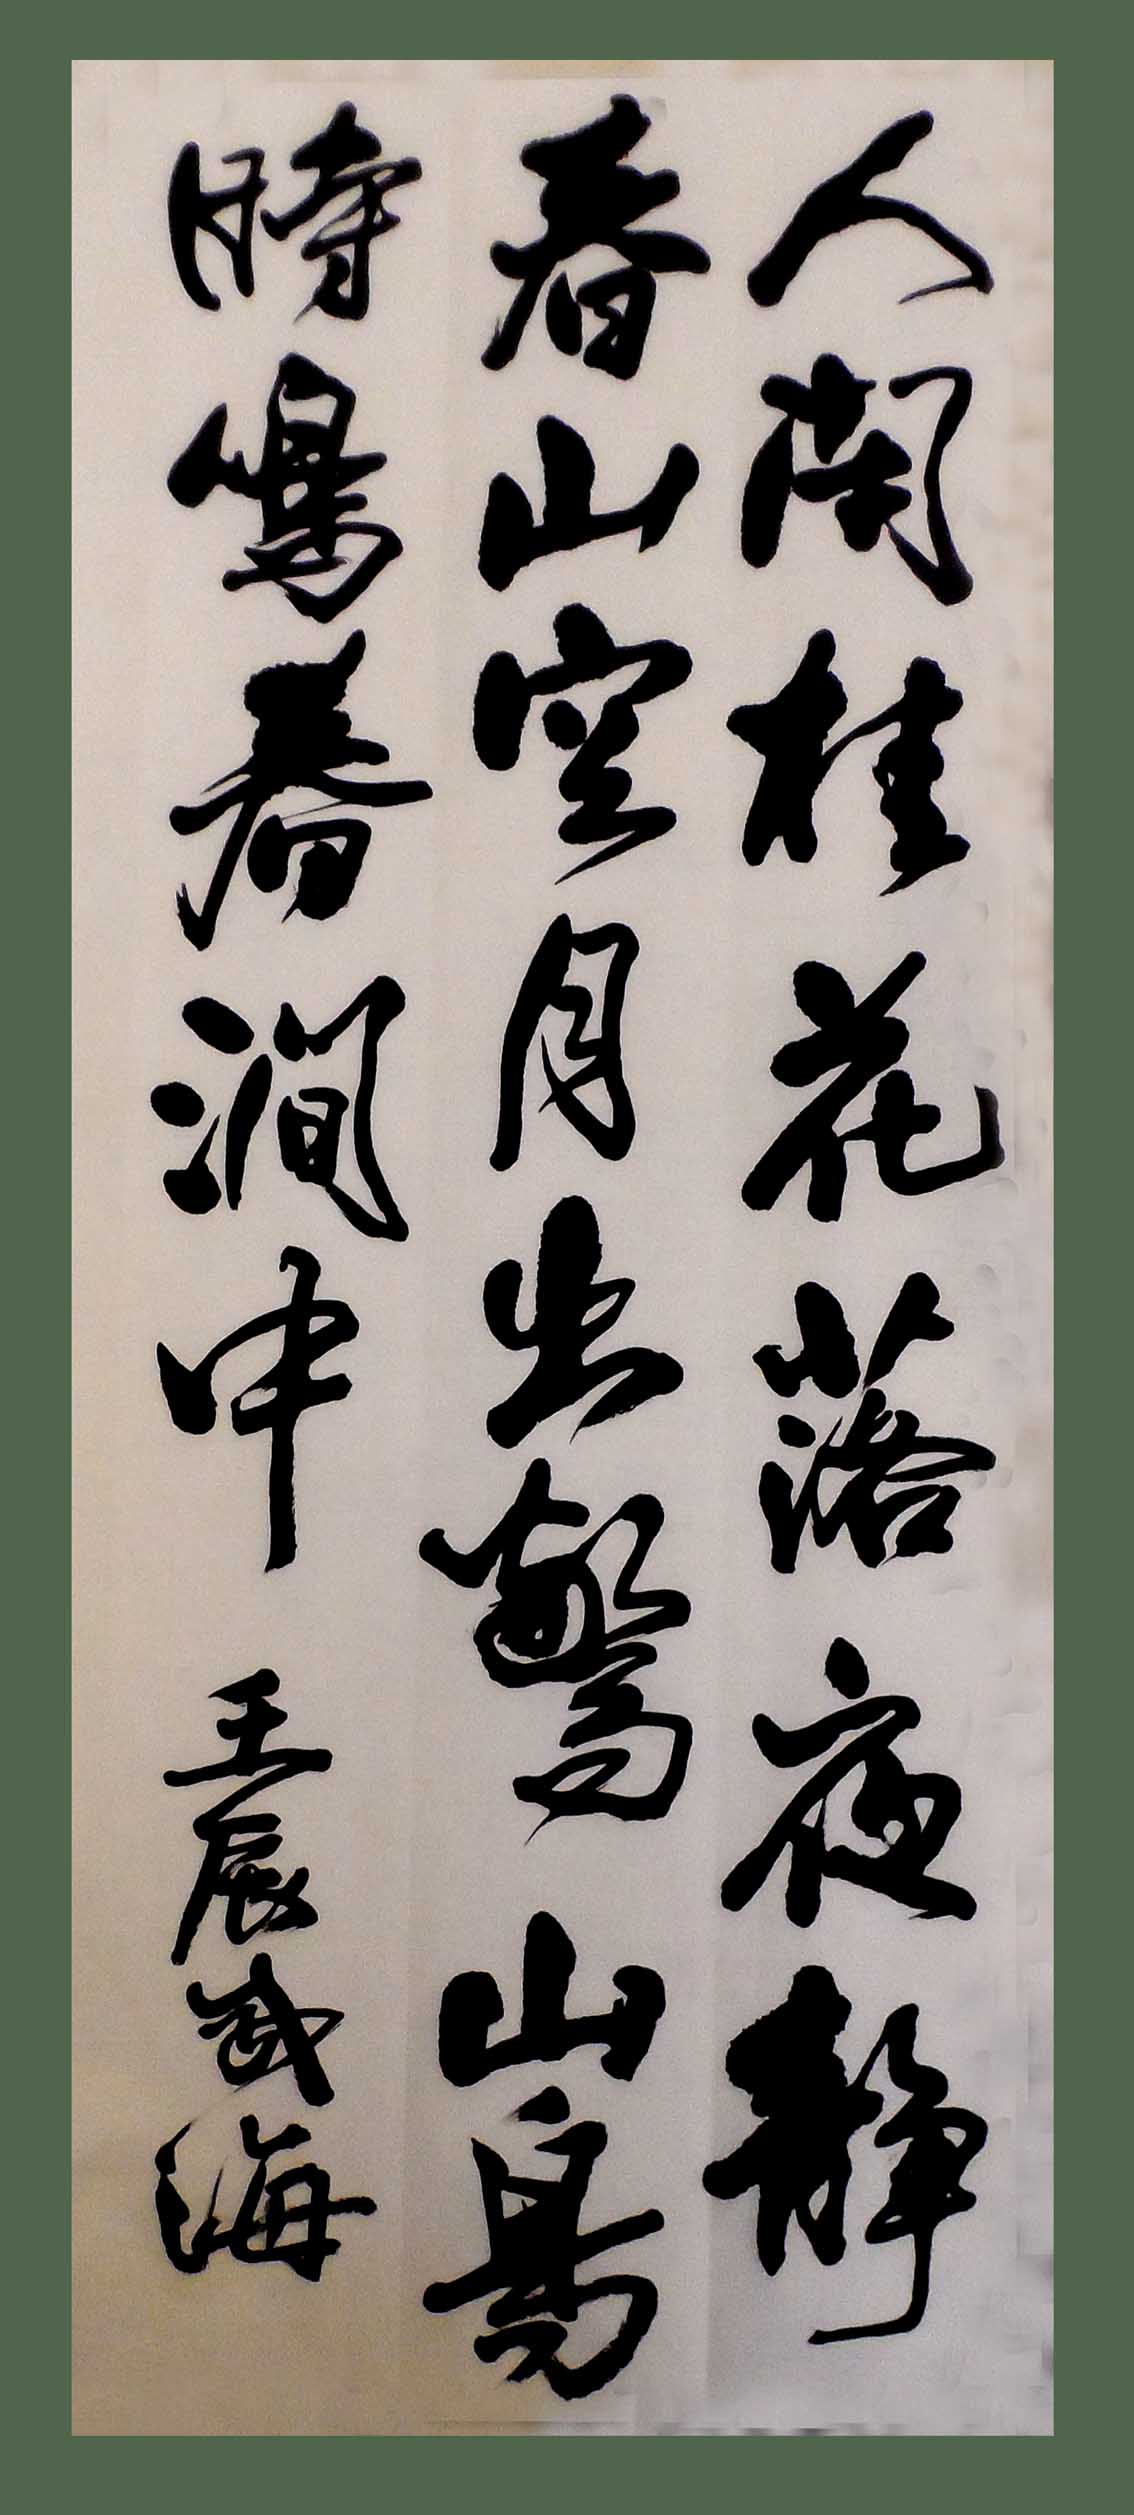 人閑桂花落夜靜
春山空月出驚山鳥
時鳴春澗中 壬辰武海